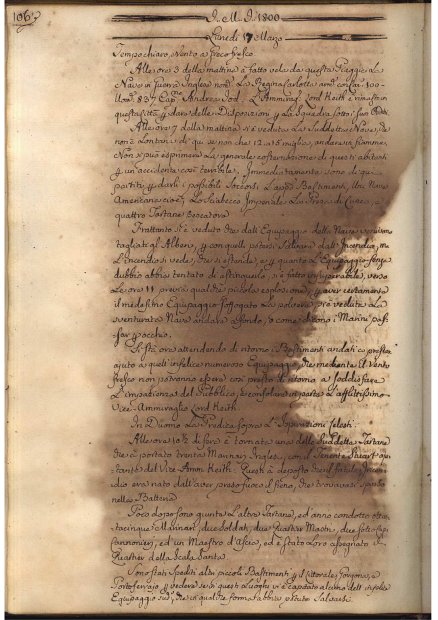 106
I. M. I. 1800
Lunedì 17 Marzo
Tempo chiaro, vento a Greco fresco
Alle ore 3 della mattina è fatto vela da questa Piaggia La
Nave in Guerra Inglese nom.ª La Regina Carlotta con Can. 100
837 Cap.º Andrea Tod. L'Ammirag. Lord Keith è rimasto in
questa Città darle Disposizioni La Squadra sotto i suoi
Alle ore 7 della mattina s'è veduta La Suddetta Nave, che
non è Lontana di qui se non che 12 a 15 miglia, andare in fiamme.
Non si può esprimere La generale costernazione di questi abitanti
un accidente così terribile. Immediatamente sono di qui
partiti darli i possibili soccorsi Bastimenti, Una Nave
Americana cioè Lo Sciabecco Imperiale, di Corsi, e
quattro Tartane Pescatore
Frattanto s'è veduto che dall'Equipaggio della Nave venivano
tagliati gl'Alberi, con quelli potersi Salvare dall'Incendio, ma
L'incendio si vede, che si estende, e quanto L'Equipaggio senza
dubbio abbia tentato di estinguerlo, s'è fatto insuperabile, verso
Le ore 11 previa qualche piccola esplosione, aver certamente
il medesimo Equipaggio soffogato La polvere, s'è veduta La
sventurata Nave andare a fondo, o come dicono i Marini
far
Si stà ora attendendo di ritorno i Bastimenti andati a prestar
ajuto a quell'infelice numeroso Equipaggio, che mediante il Vento
fresco non potranno essere così presto di ritorno a soddisfare
L'impazienza del Pubblico, e consolare in parte L'afflittissimo
Vice Ammiraglio Lord Keith.
In Duomo La Predica sopra
Alle ora 10½ di sera è tornata una delle Suddette Tartane
che à portato trenta Marinari Inglesi, con il Tenente
del Vice Amm. Keith. Questi à deposto che il fatale Incen-
dio era nato dall'aver preso fuoco il fieno, che trovavasi
nella Batteria
Poco dopo sono giunte L'altre Tartane, ed anno condotto
Marinari, due Soldati, due Quartier Mastri, due sotto Capi
Cannonieri, ed un Maestro d'Ascia, ed è stato Loro assegnato il
Quartier della Scala Santa.
Sono stati Spediti altri piccoli Bastimenti il Littorale, Gorgona, e
Portoferrajo vedere se in questi Luoghi vi è capitato alcuno dell'infelice
Equipaggio sud.º, che in qualche forma s'abbia potuto Salvare.